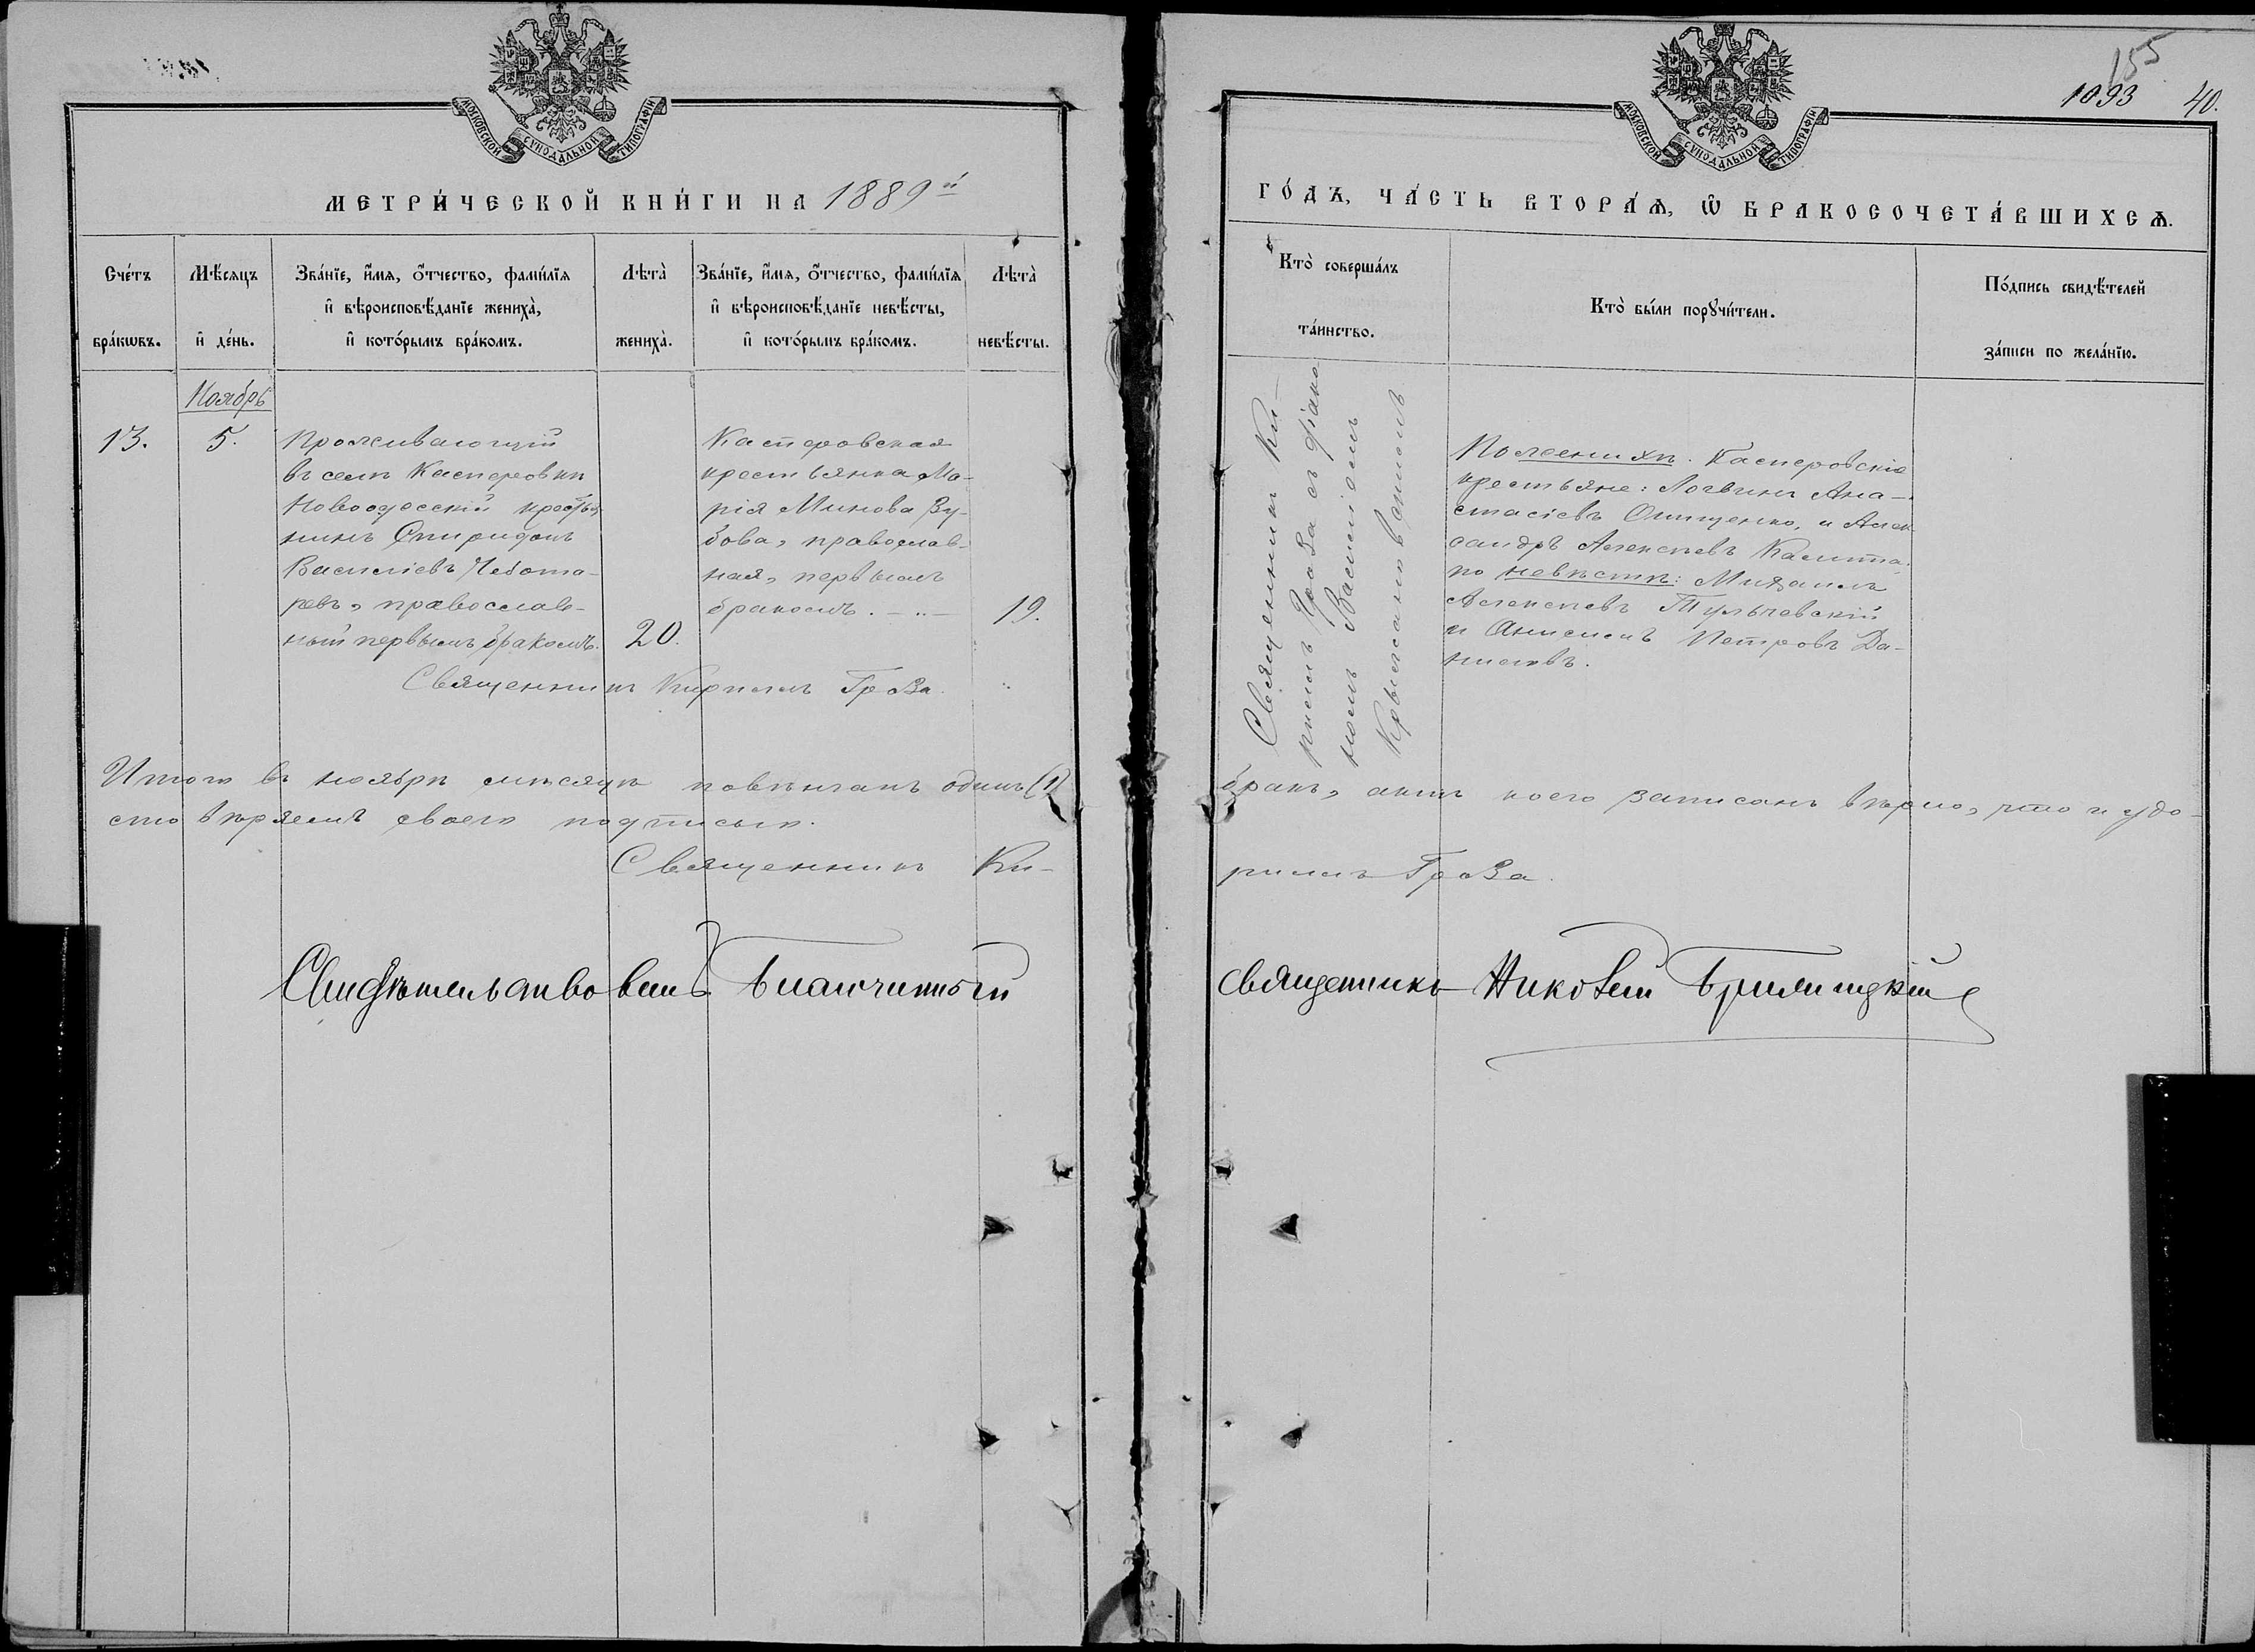 МОСКОВСКОЙ СѴНОДАЛЬНОЙ ТИПОГРАФІИ
МЕТРИ́ЧЕСКОЙ КНИ́ГИ НА 1889й
Сче́тъ бра́кѡвъ.
Мѣ́сяцъ и҆ де́нь.
Зва́нїе, и҆́мѧ, ѻ҆́тчество, фами́лїѧ
и҆ вѣроисповѣ́данїе жениха̀,
и҆ кото́рымъ бра́комъ.
Лѣта̀ жениха̀.
Зва́нїе, и҆́мѧ, ѻ҆́тчество, фами́лїѧ
и҆ вѣроисповѣ́данїе невѣ́сты,
и҆ кото́рымъ бра́комъ.
Лѣта̀ невѣ́сты.
Ноябрь
13.
5.
Проживающій
въ селѣ Касперовкѣ
Новоодесскій крестья
нинъ Спиридонъ
Василіевъ Чебота-
ревъ, православ-
ный первымъ бракомъ.
20.
Касперовская
крестьянка Ма-
рія Минова Зу-
бова, православ-
ная, первымъ
бракомъ.
19.
Священникъ Кириллъ Гроза
Итого въ ноябрѣ мѣсяцѣ повѣнчанъ одинъ (1)
стовѣряемъ своею подписью.
Священникъ Ки-
Свидѣтельствовалъ Благочинный
155
1893
40.
МОСКОВСКОЙ СѴНОДАЛЬНОЙ ТИПОГРАФІИ
ГО́ДЪ, ЧА́СТЬ ВТОРА́Ѧ, Ѡ҆ БРАКОСОЧЕТА́ВШИХСѦ.
Кто̀ соверша́лъ
та́инство.
Кто̀ бы́ли порꙋчи́тели.
По́дпись свидѣ́телей
за́писи по жела́нїю.
Священникъ Ки-
риллъ Гроза съ діако
номъ Василіемъ
Крыжановскимъ
По женихѣ: Касперовскіе
крестьяне: Логвинъ Ана-
стасіевъ Онищенко, и Алек
сандръ Алексѣевъ Калита
по невѣстѣ: Михаилъ
Алексѣевъ Тульчевскій
и Анисимъ Петровъ Да-
ниловъ.
бракъ, актъ коего записанъ вѣрно, что и удо-
риллъ Гроза.
священникъ Николай Брилицкій